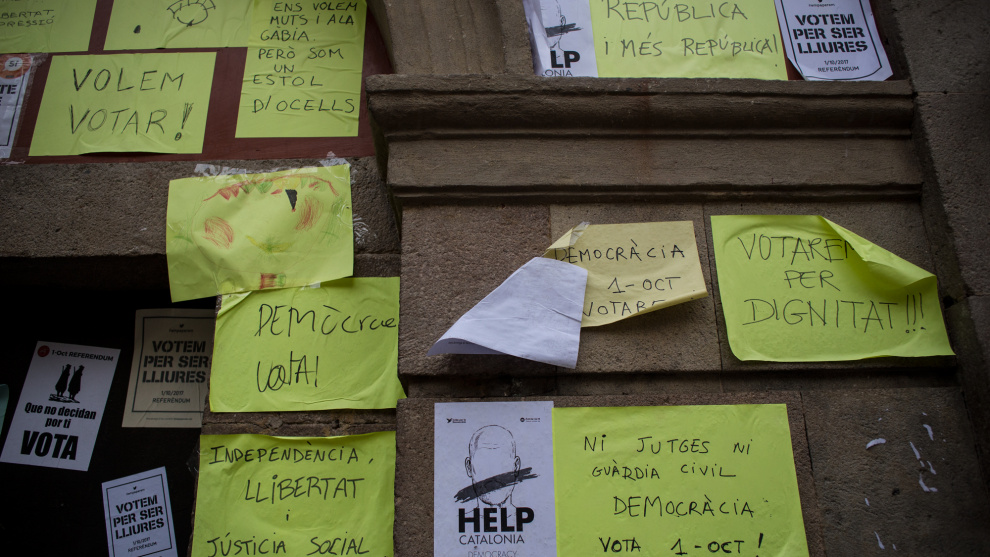 LIBERTAT
VOLEM
VOTAR!
ENS VOLEM
MUTS I A LA
GÀBIA
PERÒ SOM
UN
ESTOL
D'OCELLS
LP
LONIA
REPÚBLICA
i MÉS REPÚBLICA!
VOTEM
PER SER
LLIURES
1/10/2017
REFERÈNDUM
DEMOCRÀCIA
1-OCT
VOTAREM
VOTAREM
PER
DIGNITAT!!!
DEMÒCRACIA
VOTA!
1-Oct REFERENDUM
Que no decidan
por ti
VOTA
VOTEM
PER SER
LLIURES
1/10/2017
REFERÈNDUM
VOTEM
PER SER
LLIURES
1/10/2017
REFERÈNDUM
INDEPENDÈNCIA,
LLIBERTAT
i
JÚSTICIA SOCIAL
HELP
CATALONIA
DEMOCRACY
NI JUTGES NI
GUÀRDIA CIVIL
DEMOCRÀCIA
VOTA 1-OCT!